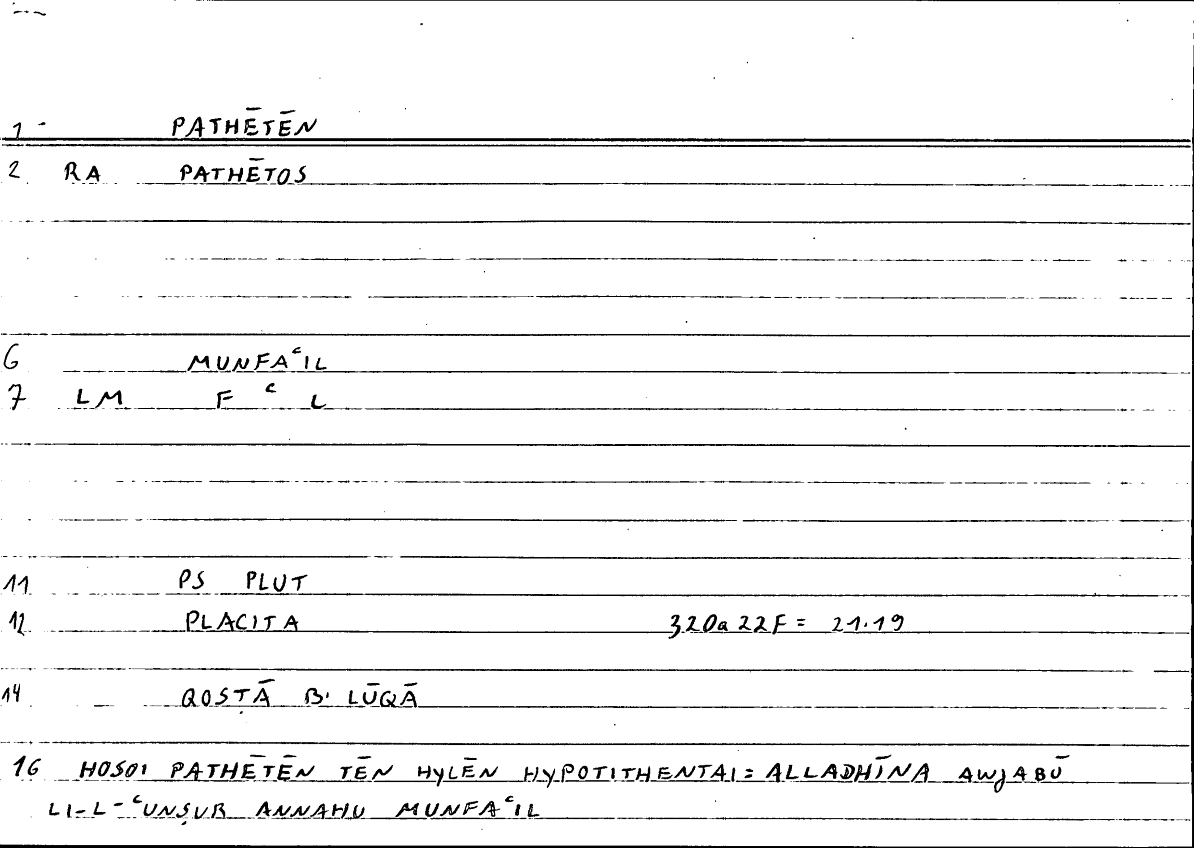 1 PATHĒTĒN
2 RA PATHĒTOS
6 MUNFAᶜIL
7 LM F ᶜ L
11 PS PLUT
12 PLACITA 320a22F = 21.19
14 QOSṬĀ B. LŪQĀ
16 HOSOI PATHĒTĒN TĒN HYLĒN HYPOTITHENTAI = ALLADHĪNA AWJABŪ
LI-L-ᶜUNṢUR ANNAHU MUNFAᶜIL